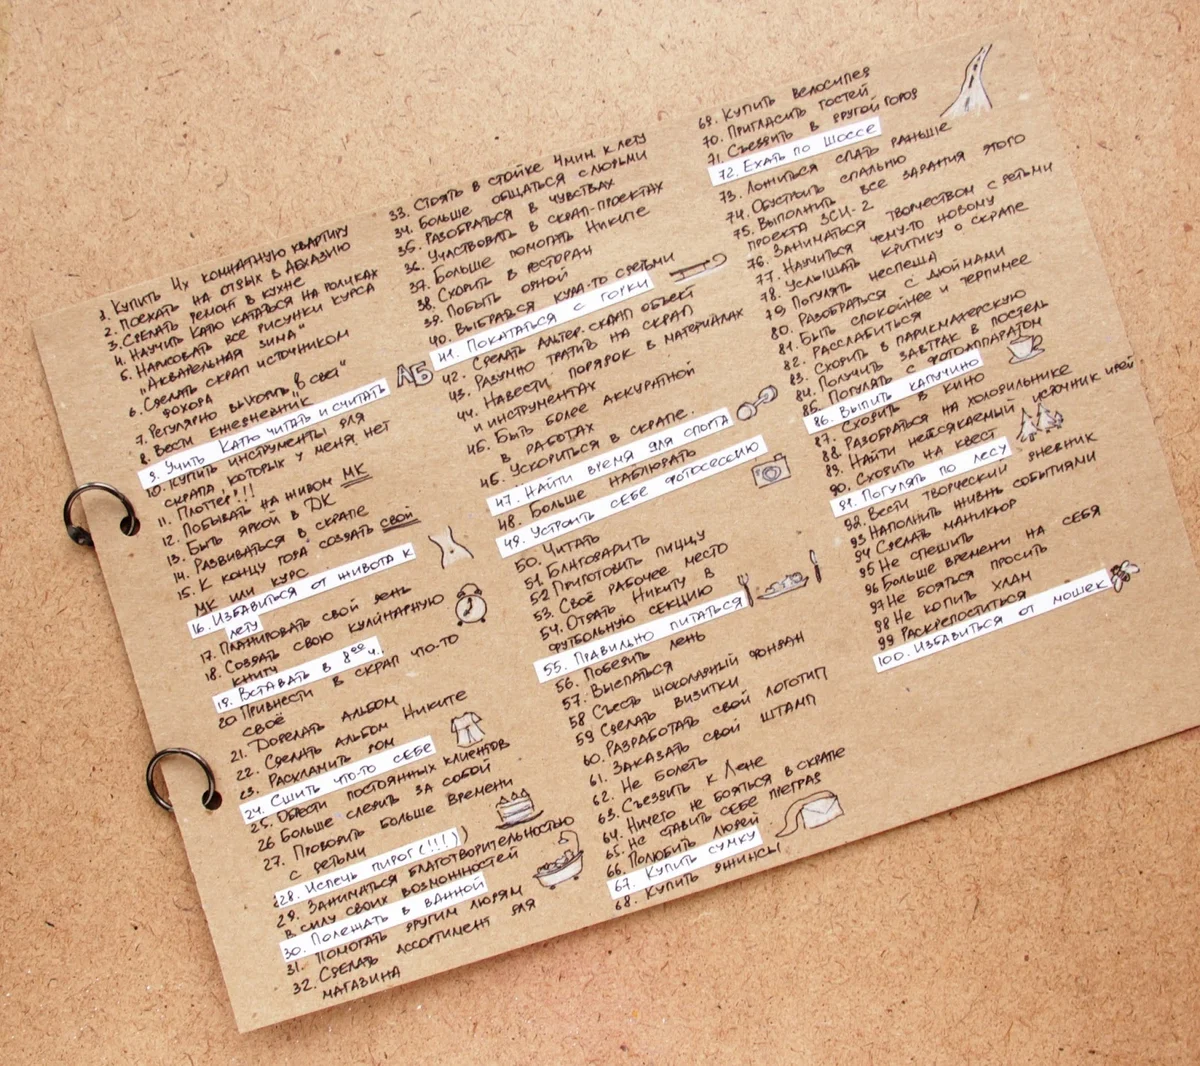 1. Купить 4х комнатную квартиру
2. Поехать на отдых в Абхазию
3. Сделать ремонт в кухне
4. Научить Катю кататься на роликах
5. Нарисовать все рисунки курса
"Акварельная зима"
6. Сделать скрап источником
дохода
7. Регулярно выходить в свет
8. Вести ежедневник
9. Учить Катю читать и считать
АБ
10. Купить инструменты для
скрапа, которых у меня нет
11. Плоттер!!!
12. Побывать на живом МК
13. Быть яркой в ДК
14. Развиваться в скрапе
15. К концу года создать свой
МК или курс
16. Избавиться от живота к
лету
17. Планировать свой день
18. Создать свою кулинарную
книгу
19. Вставать в 8⁰⁰ ч.
20 Привнести в скрап что-то
своё
21. Доделать альбом
22. Сделать альбом Никите
23. Расхламить дом
24. Сшить что-то себе
25. Обрести постоянных клиентов
26 Больше следить за собой
27. Проводить больше времени
с детьми
28. Испечь пирог (!!!)
29. Заниматься благотворительностью
в силу своих возможностей
30. Полежать в ванной
31. Помогать другим людям
32. Сделать ассортимент для
магазина
33. Стоять в стойке 4 мин. к лету
34. Больше общаться с людьми
35. Разобраться в чувствах
36. Участвовать в скрап-проектах
37. Больше помогать Никите
38. Сходить в ресторан
39. Побыть одной
40. Выбраться куда-то с детьми
41. Покататься с горки
42. Сделать альтер.скрап объект
43. Разумно тратить на скрап
44. Навести порядок в материалах
и инструментах
45. Быть более аккуратной
в работах
46. Ускориться в скрапе.
47. Найти время для спорта
48. Больше наблюдать
49. Устроить себе фотосессию
50. Читать
51. Благодарить
52 Приготовить пиццу
53. Своё рабочее место
54. Отдать Никиту в
футбольную секцию
55. Правильно питаться
56. Победить лень
57. Выспаться
58 Съесть шоколадный фондан
59 Сделать визитки
60. Разработать свой логотип
61. Заказать свой штамп
62. Не болеть
63. Съездить к Лене
64. Ничего не бояться в скрапе
65. Не ставить себе преград
66. Полюбить людей
67. Купить сумку
68. Купить джинсы
69. Купить велосипед
70. Пригласить гостей
71. Съездить в другой город
72. Ехать по шоссе
73. Ложиться спать раньше
74. Обустроить спальню
75. Выполнить все задания этого
проекта ЗСИ-2
76. Заниматься творчеством с детьми
77. Научиться чему-то новому
78. Услышать критику о скрапе
79 Погулять неспеша
80. Разобраться с дюймами
81. Быть спокойнее и терпимее
82. Расслабиться
83. Сходить в парикмахерскую
84. Получить завтрак в постель
85. Погулять с фотоаппаратом
86. Выпить капучино
87. Сходить в кино
88. Разобраться на холодильнике
89. Найти неиссякаемый источник идей
90. Сходить на квест
91. Погулять по лесу
92. Вести творческий дневник
93 Наполнить жизнь событиями
94 Сделать маникюр
95 Не спешить
96 Больше времени на себя
97 Не бояться просить
98 Не копить хлам
99 Раскрепоститься
100. Избавиться от мошек